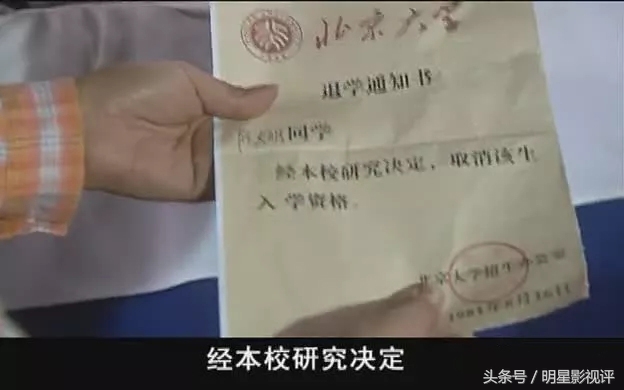 北京大学
退学通知书
同学
经本校研究决定，取消该生
入学资格.
北京大学招生办公室
经本校研究决定
头条号／明星影视评